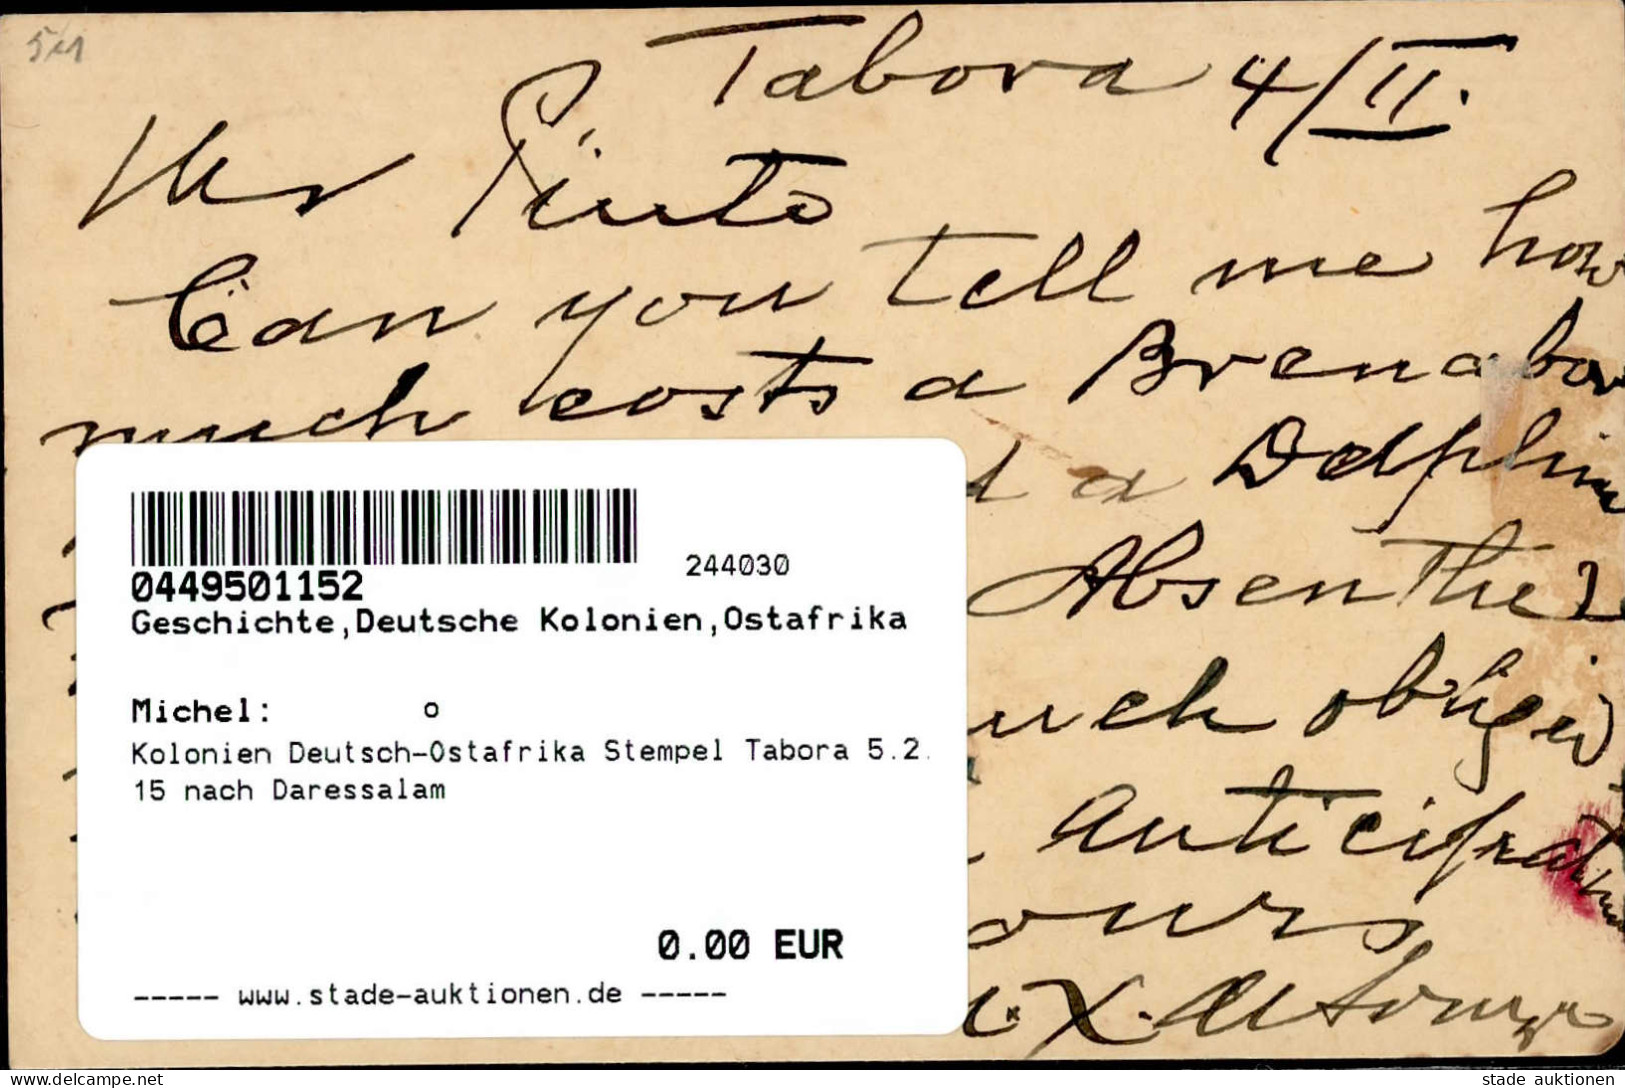 Tabora 4/II.
Mr Pinto
Can you tell me how
much costs a Brenabor
a Delphin
Absenthe?
much obliged
anticipation
yours
0449501152
244030
Geschichte,Deutsche Kolonien,Ostafrika
Michel: o
Kolonien Deutsch-Ostafrika Stempel Tabora 5.2.
15 nach Daressalam
0.00 EUR
----- www.stade-auktionen.de -----
www.delcampe.net
stade auktionen